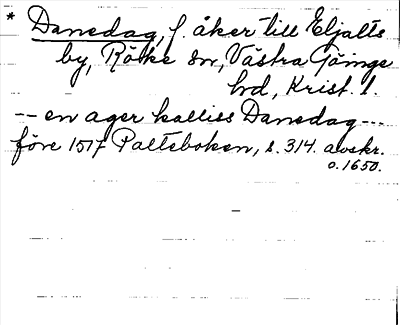 * Danedag, f. åker till Eljalts
by, Röke sn, Västra Göinge
hd, Krist. l.
-- en ager kalliss Danedag ---
före 1517 Palteboken, s. 314. avskr.
o. 1650.